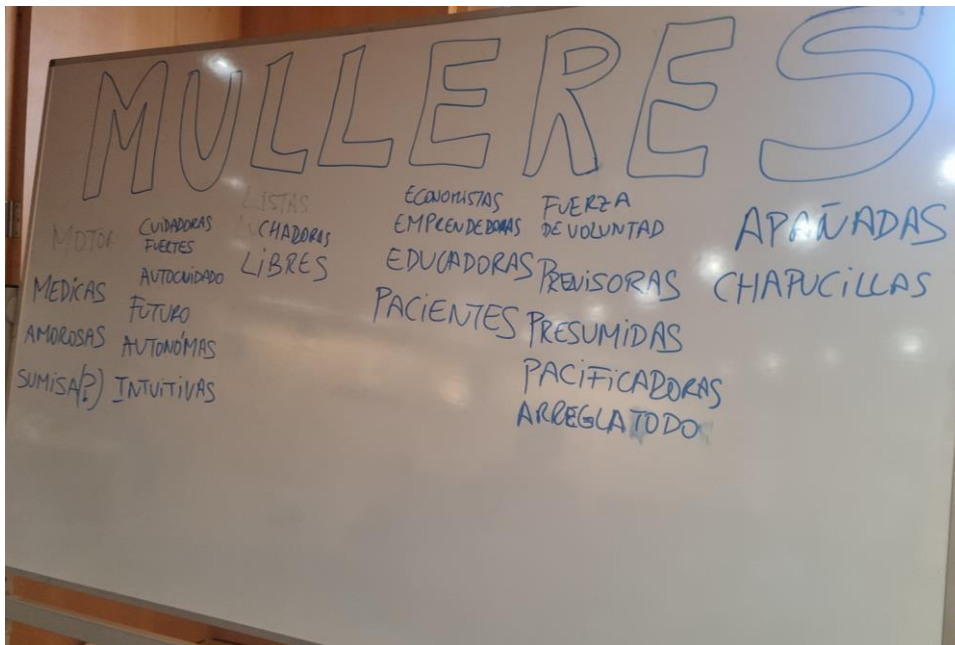 MULLERES
MOTOR
MEDICAS
AMOROSAS
SUMISA(?)
CUIDADORAS
FUERTES
AUTOCUIDADO
FUTURO
AUTONÓMAS
INTUITIVAS
LISTAS
LUCHADORAS
LIBRES
ECONOMISTAS
EMPRENDEDORAS
EDUCADORAS
PACIENTES
FUERZA
DE VOLUNTAD
PREVISORAS
PRESUMIDAS
PACIFICADORAS
ARREGLATODO
APAÑADAS
CHAPUCILLAS